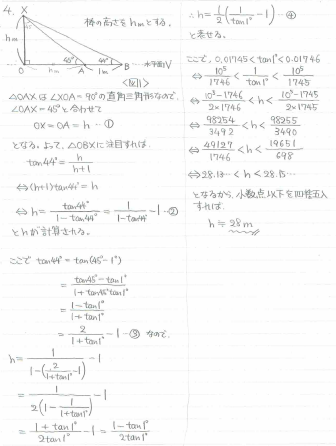 4.
X
棒の高さを hm とする。
hm
45°
44°
O
hm
A
1m
B
… 水平面V
<図1>
△OAXは ∠XOA = 90° の直角三角形なので、
∠OAX = 45° と合わせて
OX = OA = h … ①
となる。よって、△OBXに注目すれば、
tan44° = h/(h+1)
⇔ (h+1)tan44° = h
⇔ h = tan44°/(1-tan44°) = 1/(1-tan44°) - 1 … ②
とhが計算される。
ここで tan44° = tan(45°-1°)
= (tan45°-tan1°)/(1+tan45°tan1°)
= (1-tan1°)/(1+tan1°)
= 2/(1+tan1°) - 1 … ③ なので、
h = 1/(1-(2/(1+tan1°)-1)) - 1
= 1/(2(1-1/(1+tan1°))) - 1
= (1+tan1°)/(2tan1°) - 1 = (1-tan1°)/(2tan1°)
∴ h = 1/2(1/tan1° - 1) … ④
と表せる。
ここで、0.01745 < tan1° < 0.01746
⇔ 10⁵/1746 < 1/tan1° < 10⁵/1745
⇔ (10⁵-1746)/(2×1746) < h < (10⁵-1745)/(2×1745)
⇔ 98254/3492 < h < 98255/3490
⇔ 49127/1746 < h < 19651/698
⇔ 28.13… < h < 28.15…
となるから、小数点以下を四捨五入
すれば、
h ≒ 28m